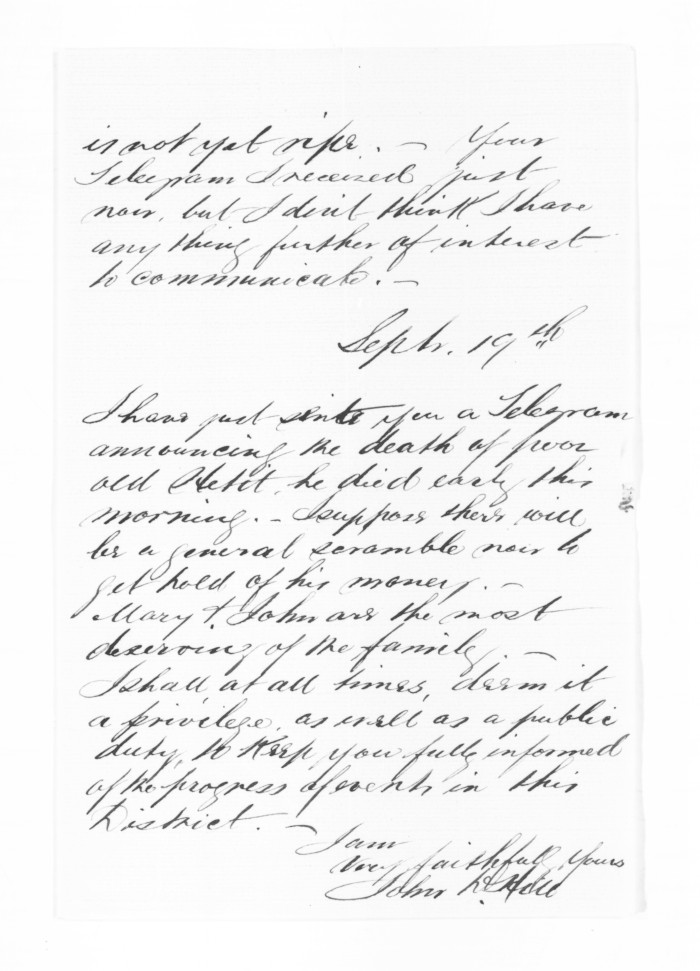 is not yet ripe. — Your
Telegram I received just
now, but I don't think I have
any thing further of interest
to communicate. —
Septr. 19th
I have just sent you a Telegram
announcing the death of poor
old Hetit, he died early this
morning. — I suppose there will
be a general scramble now to
get hold of his money. —
Mary & John are the most
deserving of the family. —
I shall, at all times, deem it
a privilege, as well as a public
duty, to keep you fully informed
of the progress of events in this
District. —
I am
Very faithfully Yours
John